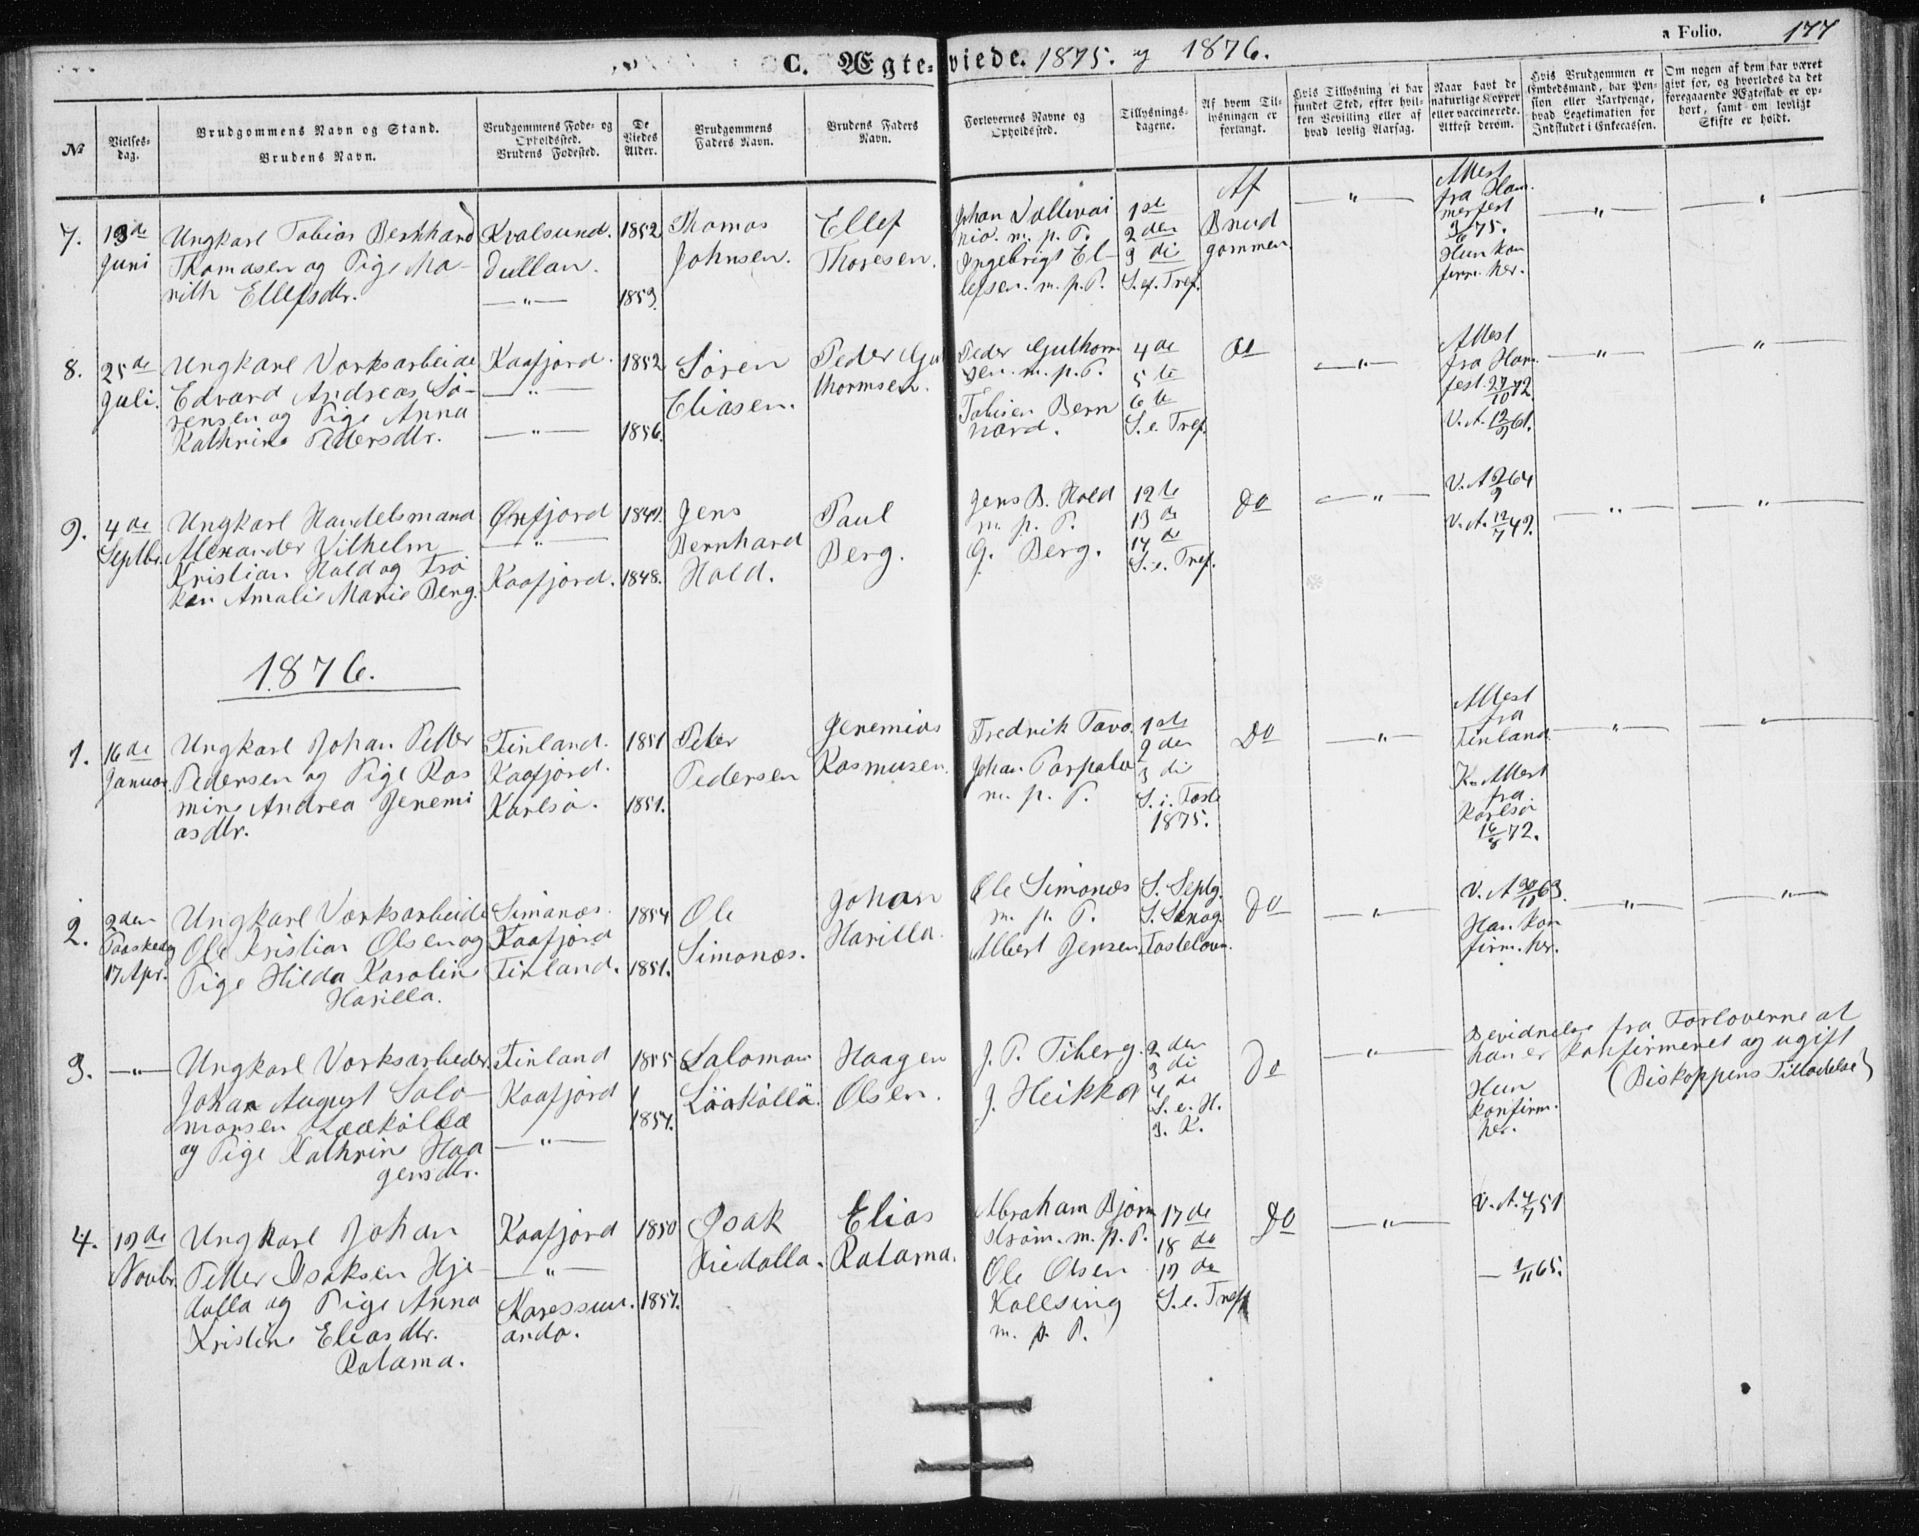 C. Ægte-viede. 1875. og 1876.
a Folio. 177
№
Vielses-
dag.
Brudgommens Navn og Stand.
Brudens Navn.
Brudgommens Føde- og
Opholdssted.
Brudens Fødested.
De
Viedes
Alder.
Brudgommens
Faders Navn.
Brudens Faders
Navn.
Forlovernes Navne og
Opholdssted.
Tillysnings-
dagene.
Af hvem Til-
lysningen er
forlangt.
Hvis Tillysning ei har
fundet Sted, efter hvil-
ken Bevilling eller af
hvad lovlig Aarsag.
Naar havt de
naturlige Kopper
eller vaccinerede.
Attest derom.
Hvis Brudgommen er
Embedsmand, har Pen-
sion eller Vartpenge,
hvad Legetimation for
Indskudet i Enkecassen.
Om nogen af dem har været
gift før, og hvorledes da det
foregaaende Ægteskab er op-
hørt, samt om lovligt
Skifte er holdt.
7.
13de
Juni
Ungkarl Tobias Bernhard
Thomasen og Pige Ma-
rith Ellefsdtr.
Kvalsund.
Dullan.
—"—
1852
1853.
Thomas
Johnsen.
Ellef
Thoresen.
Johan
m. p. P.
Ingebrigt El-
lefsen. m. p. P.
1ste
2den
3di
S. ef. Tref.
Af
Brud
gommen.
—"—
Attest
fra Ham
merfest
3/6 75.
Hun kon
firm. her.
—"—
"
8.
25de
Juli.
Ungkarl Værksarbeide
Edvard Andreas Sø-
rensen og Pige Anna
Kathrine Pedersdtr.
Kaafjord.
—"—
—"—
1852
1856.
Søren
Eliasen.
Peder Gu
thormsen.
Peder Guthorm
sen. m. p. P.
Tobisen Bern
hard.
4de
5te
6te
S. e. Tref.
Do
—"—
Attest
fra Ham
fest 27/10 72
—"—
—"—
9.
4de
Septbr.
Ungkarl Handelsmand
Alexander Vilhelm
Kristian Hald og Frø
ken Amalie Marie Berg.
Øxfjord
—"—
Kaafjord.
1848.
Jens
Bernhard
Hald.
Paul
Berg.
Jens B. Hald
m. p. P.
G. Berg.
12te
13de
14de
S. e. Tref.
Do
—"—
V. A. 12/7 49.
—"—
—"—
1876.
1.
16de
Januar
Ungkarl Johan Petter
Pedersen og Pige Ras
mine Andrea Jeremi
asdtr.
Finland.
Kaafjord.
Karlsø.
1851
1851.
Peter
Pedersen
Jeremias
Rasmusen.
Fredrik Tavo
Johan Parpala
m. p. P.
1ste
2den
3di
S. i. Faste
1875.
Do
—"—
Attest
fra
Finland
K. Attest
fra
Karlsø
16/8 72.
"
"
2.
2den
Paaskedag
17 Apr.
Ungkarl Værksarbeide
Ole Kristian Olsen og
Pige Hilda Karolin
Harilla.
Simanæs.
Kaafjord
Finland.
1854
1851.
Ole
Simonæs.
Johan
Harilla.
Ole Simonæs
m. p. P.
Albert Jensen
S. Septg.
Fastelavn.
Do
—"—
V. A. 30/11 63.
Han kon
firm. her.
—"—
—"—
3.
—"—
Ungkarl Værksarbeder
Johan August Salo
monsen Lææköllæ
og Pige Kathrine Haa
gensdtr.
Finland
Kaafjord
—"—
1855
1854.
Salomon
Lääköllä.
Haagen
Olsen.
J. P. Tiberg.
J. Heikka
2den
3di
4de
S. e. H.
3. K.
Do
—"—
Bevidnelse fra Forloverne at
han er konfirmeret og ugift
(Biskoppens Tilladelse)
Hun
konfirm.
her.
4.
19de
Novbr.
Ungkarl Johan
Petter Isaksen Hje-
dalla og Pige Anna
Kristine Eliasdtr.
Ratama.
Kaafjord
—"—
Karessuu.
ando.
1850
1857.
Isak
Hiedalla.
Elias
Ratama.
Abraham Bjørn
strøm. m. p. P.
Ole Olsen
Kallsing
m. p. P.
17de
18de
19de
S. e. Tref
Do
—"—
V. A. 4/7 51
— 1/11 65.